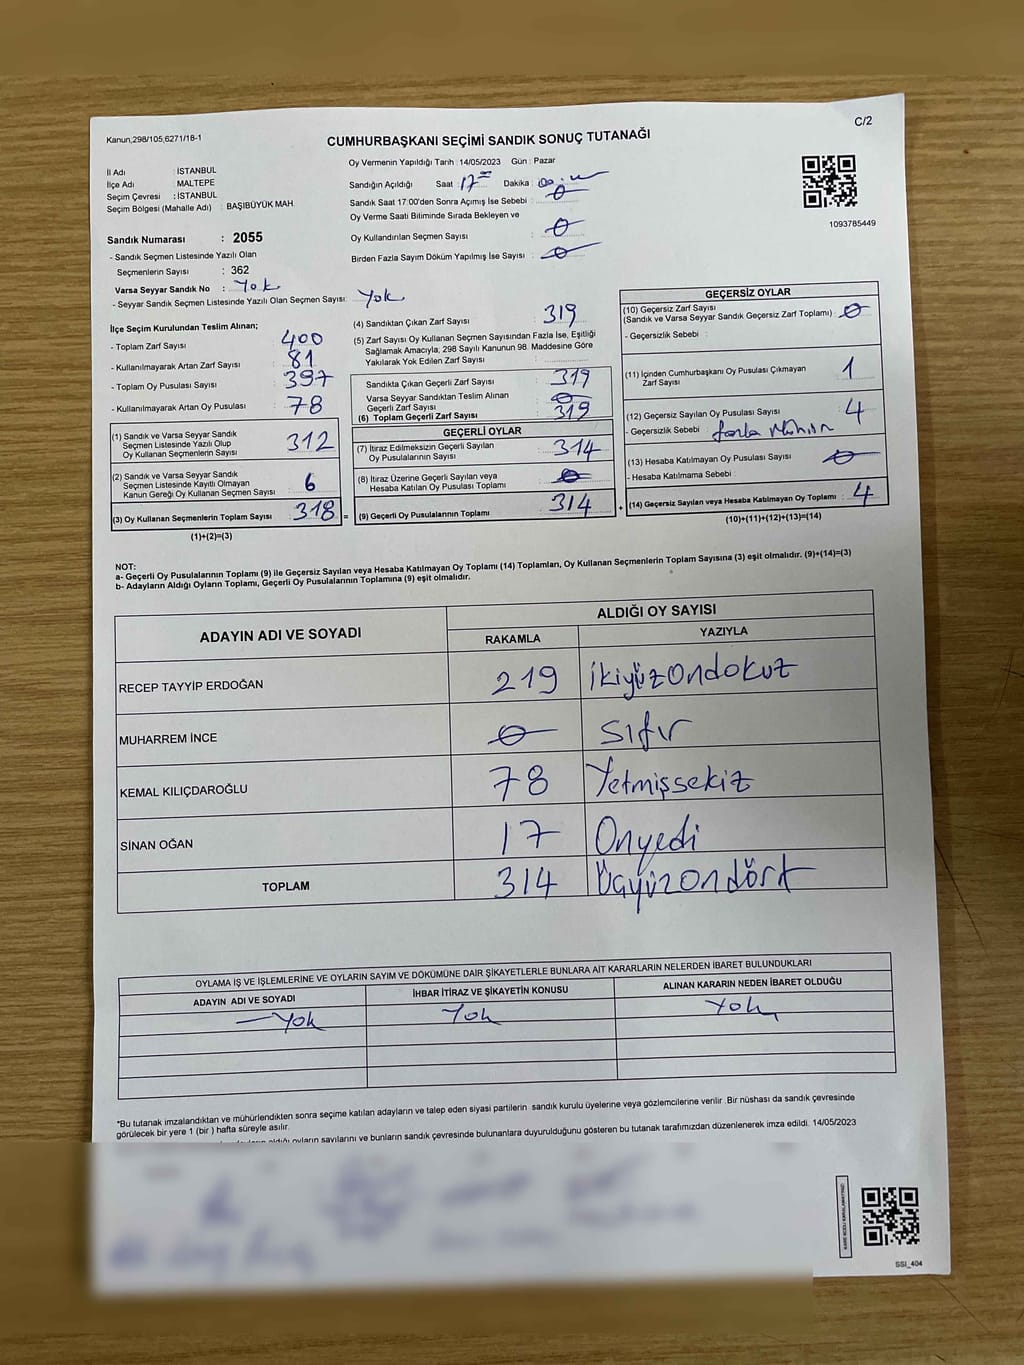 Kanun;298/105;6271/18-1
C/2
CUMHURBAŞKANI SEÇİMİ SANDIK SONUÇ TUTANAĞI
İl Adı : İSTANBUL
İlçe Adı : MALTEPE
Seçim Çevresi : İSTANBUL
Seçim Bölgesi (Mahalle Adı) : BAŞIBÜYÜK MAH.
Sandık Numarası : 2055
- Sandık Seçmen Listesinde Yazılı Olan
Seçmenlerin Sayısı : 362
Varsa Seyyar Sandık No : Yok
- Seyyar Sandık Seçmen Listesinde Yazılı Olan Seçmen Sayısı: Yok
Oy Vermenin Yapıldığı Tarih : 14/05/2023 Gün : Pazar
Sandığın Açıldığı Saat : 17 Dakika :
Sandık Saat 17:00'den Sonra Açımış İse Sebebi : 0
Oy Verme Saati Bitiminde Sırada Bekleyen ve
Oy Kullandırılan Seçmen Sayısı : 0
Birden Fazla Sayım Döküm Yapılmış İse Sayısı : 0
1093785449
İlçe Seçim Kurulundan Teslim Alınan;
- Toplam Zarf Sayısı : 400
- Kullanılmayarak Artan Zarf Sayısı : 81
- Toplam Oy Pusulası Sayısı : 397
- Kullanılmayarak Artan Oy Pusulası : 78
(1) Sandık ve Varsa Seyyar Sandık
Seçmen Listesinde Yazılı Olup
Oy Kullanan Seçmenlerin Sayısı : 312
(2) Sandık ve Varsa Seyyar Sandık
Seçmen Listesinde Kayıtlı Olmayan
Kanun Gereği Oy Kullanan Seçmen Sayısı : 6
(3) Oy Kullanan Seçmenlerin Toplam Sayısı : 318 =
(1)+(2)=(3)
(4) Sandıktan Çıkan Zarf Sayısı : 319
(5) Zarf Sayısı Oy Kullanan Seçmen Sayısından Fazla İse, Eşitliği
Sağlamak Amacıyla, 298 Sayılı Kanunun 98. Maddesine Göre
Yakılarak Yok Edilen Zarf Sayısı :
Sandıkta Çıkan Geçerli Zarf Sayısı : 319
Varsa Seyyar Sandıktan Teslim Alınan
Geçerli Zarf Sayısı : 0
(6) Toplam Geçerli Zarf Sayısı : 319
GEÇERLİ OYLAR
(7) İtiraz Edilmeksizin Geçerli Sayılan
Oy Pusulalarının Sayısı : 314
(8) İtiraz Üzerine Geçerli Sayılan veya
Hesaba Katılan Oy Pusulası Toplamı : 0
(9) Geçerli Oy Pusulalarının Toplamı : 314 +
GEÇERSİZ OYLAR
(10) Geçersiz Zarf Sayısı
(Sandık ve Varsa Seyyar Sandık Geçersiz Zarf Toplamı) : 0
- Geçersizlik Sebebi :
(11) İçinden Cumhurbaşkanı Oy Pusulası Çıkmayan
Zarf Sayısı : 1
(12) Geçersiz Sayılan Oy Pusulası Sayısı : 4
- Geçersizlik Sebebi : fazla Mühür
(13) Hesaba Katılmayan Oy Pusulası Sayısı : 0
- Hesaba Katılmama Sebebi :
(14) Geçersiz Sayılan veya Hesaba Katılmayan Oy Toplamı : 4
(10)+(11)+(12)+(13)=(14)
NOT:
a- Geçerli Oy Pusulalarının Toplamı (9) ile Geçersiz Sayılan veya Hesaba Katılmayan Oy Toplamı (14) Toplamları, Oy Kullanan Seçmenlerin Toplam Sayısına (3) eşit olmalıdır. (9)+(14)=(3)
b- Adayların Aldığı Oyların Toplamı, Geçerli Oy Pusulalarının Toplamına (9) eşit olmalıdır.
ADAYIN ADI VE SOYADI ALDIĞI OY SAYISI
RAKAMLA YAZIYLA
RECEP TAYYİP ERDOĞAN 219 ikiyüzondokuz
MUHARREM İNCE 0 sıfır
KEMAL KILIÇDAROĞLU 78 Yetmişsekiz
SİNAN OĞAN 17 Onyedi
TOPLAM 314 Üçyüzondört
OYLAMA İŞ VE İŞLEMLERİNE VE OYLARIN SAYIM VE DÖKÜMÜNE DAİR ŞİKAYETLERLE BUNLARA AİT KARARLARIN NELERDEN İBARET BULUNDUKLARI
ADAYIN ADI VE SOYADI İHBAR İTİRAZ VE ŞİKAYETİN KONUSU ALINAN KARARIN NEDEN İBARET OLDUĞU
Yok Yok Yok
*Bu tutanak imzalandıktan ve mühürlendikten sonra seçime katılan adayların ve talep eden siyasi partilerin sandık kurulu üyelerine veya gözlemcilerine verilir. Bir nüshası da sandık çevresinde
görülecek bir yere 1 (bir) hafta süreyle asılır.
aldığı oyların sayılarını ve bunların sandık çevresinde bulunanlara duyurulduğunu gösteren bu tutanak tarafımızdan düzenlenerek imza edildi. 14/05/2023
SSİ_404